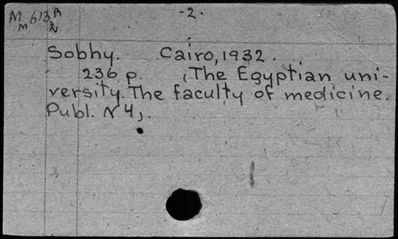 M 613 A
- 2 -
M 2
Sobhy. Cairo, 1932.
236 p. , The Egyptian uni-
versity. The faculty of medicine.
Publ. N 4,.